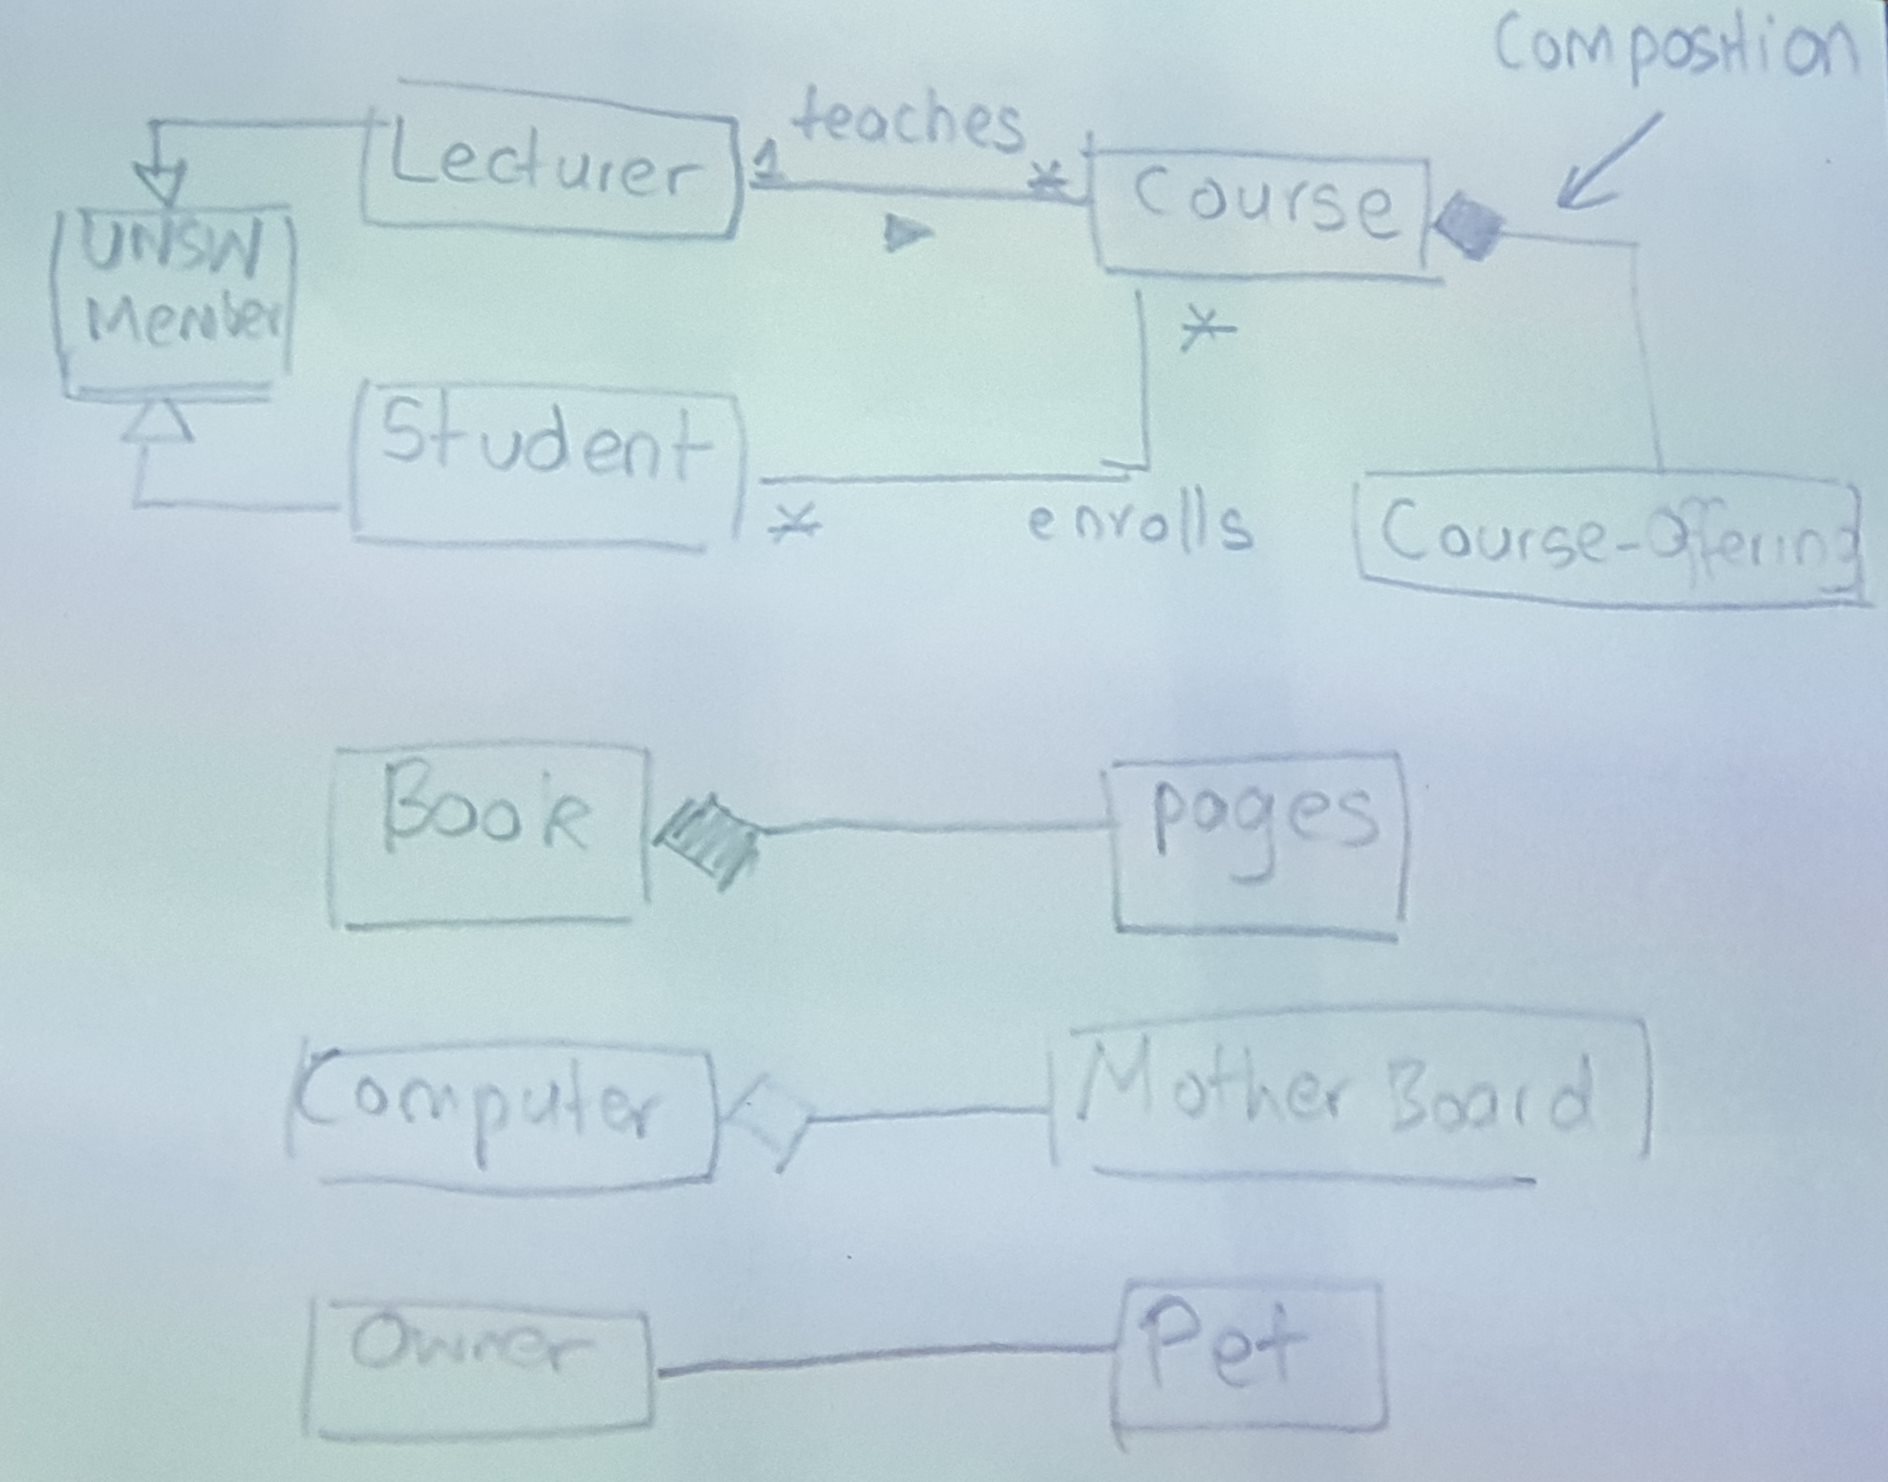 Composition
Lecturer
1
teaches
*
Course
UNSW
Member
*
Student
*
enrolls
Course-Offering
Book
pages
Computer
Mother Board
Owner
Pet